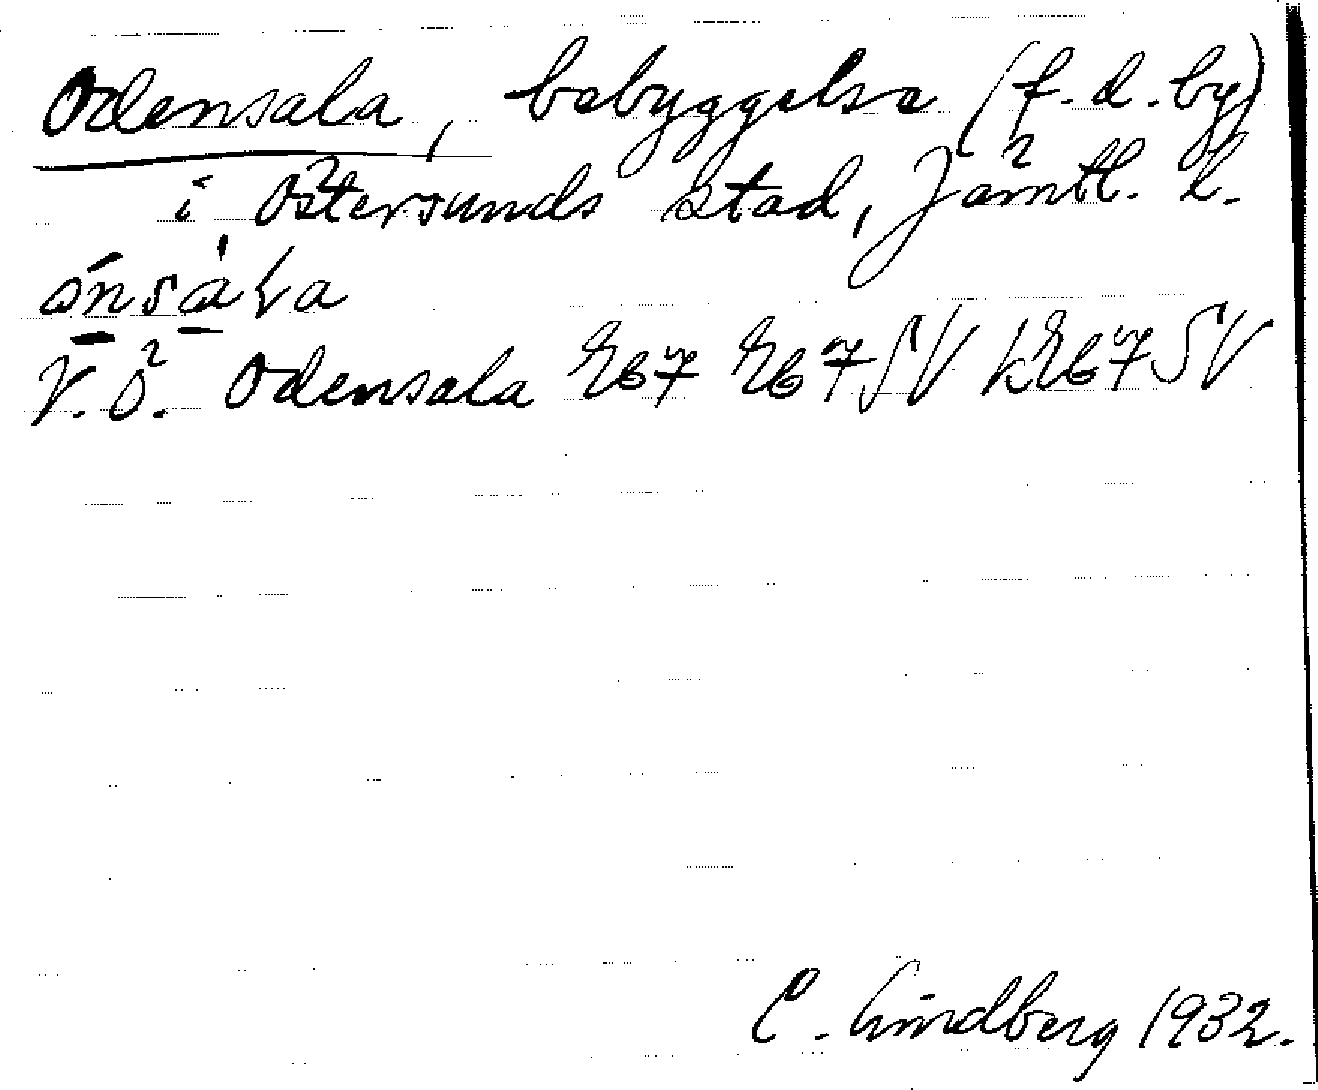 Odensala, bebyggelse (f.d. by)
i Östersunds stad, Jämtl. l.
ó̱nsa̱̍la
V.Ö. Odensala
C. Lindberg 1932.